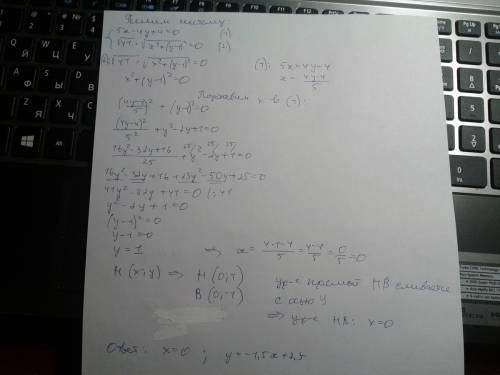 Решим систему:
5x-4y+4=0 (1)
√41 · √x²+(y-1)² =0 (2)
√41 · √x²+(y-1)² =0 (1): 5x=4y-4
x²+(y-1)²=0 x= (4y-4)/5
Подставим x в (2):
((4y-4)/5)² + (y-1)²=0
(4y-4)²/5² + y²-2y+1=0
(16y²-32y+16)/25 + y²-2y+1=0
16y²-32y+16+25y²-50y+25=0
41y²-82y+41=0 |:41
y²-2y+1=0
(y-1)²=0
y-1=0
y=1 ⇒ x= (4·1-4)/5 = (4-4)/5 = 0/5 =0
H(x;y) ⇒ H(0;1) ур-е прямой HB сливается
B(0;-1) с осью y
⇒ ур-е HB: x=0
Ответ: x=0 ; y=-1,5x+2,5